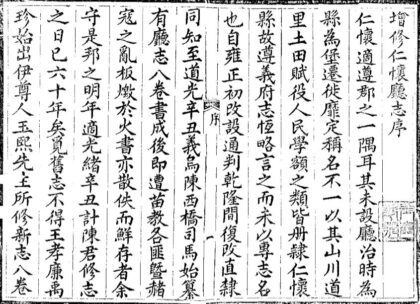 增修仁懷廳志序
仁懷適遵郡之一隅耳其未設廳治時為
縣為堡還徙靡定稱名不一以其山川道
里土田賦役人民學額之類皆册隸仁懷
縣故遵義府志恆略言之而未以專志名
也自雍正初改設通判乾隆間復改直隸
序
同知至道光辛丑義烏陳西橋司馬始纂
有廳志八卷書成後即遭苗教各匪暨赭
寇之亂板燬於火書亦散佚而鮮存者余
守是邦之明年適光緒辛丑計陳君修志
之日已六十年矣覓舊志不得王孝廉禹
珍始出伊尊人玉熙先生所修新志八卷